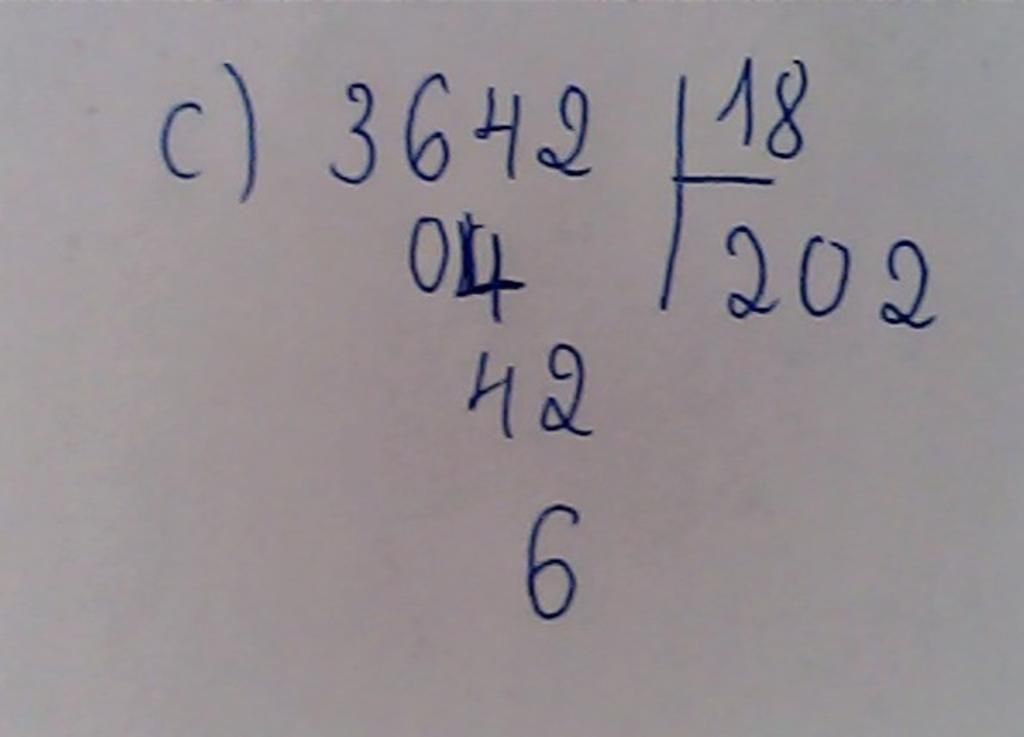 c) 3642 | 18
04 202
42
6